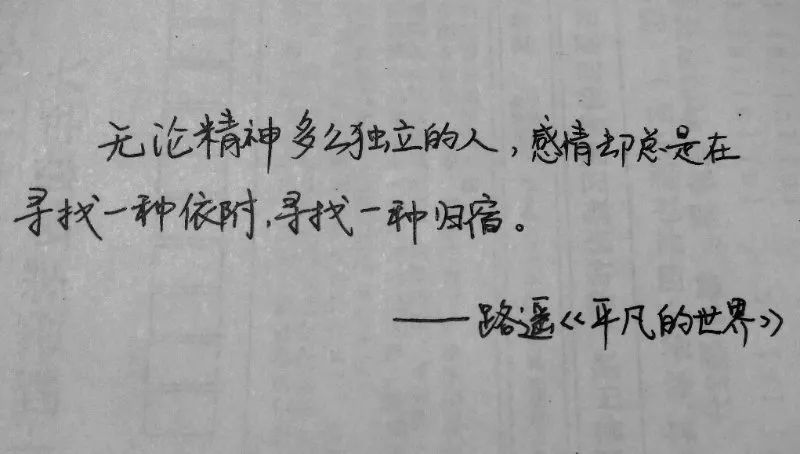 无论精神多么独立的人，感情却总是在
寻找一种依附，寻找一种归宿。
——路遥《平凡的世界》